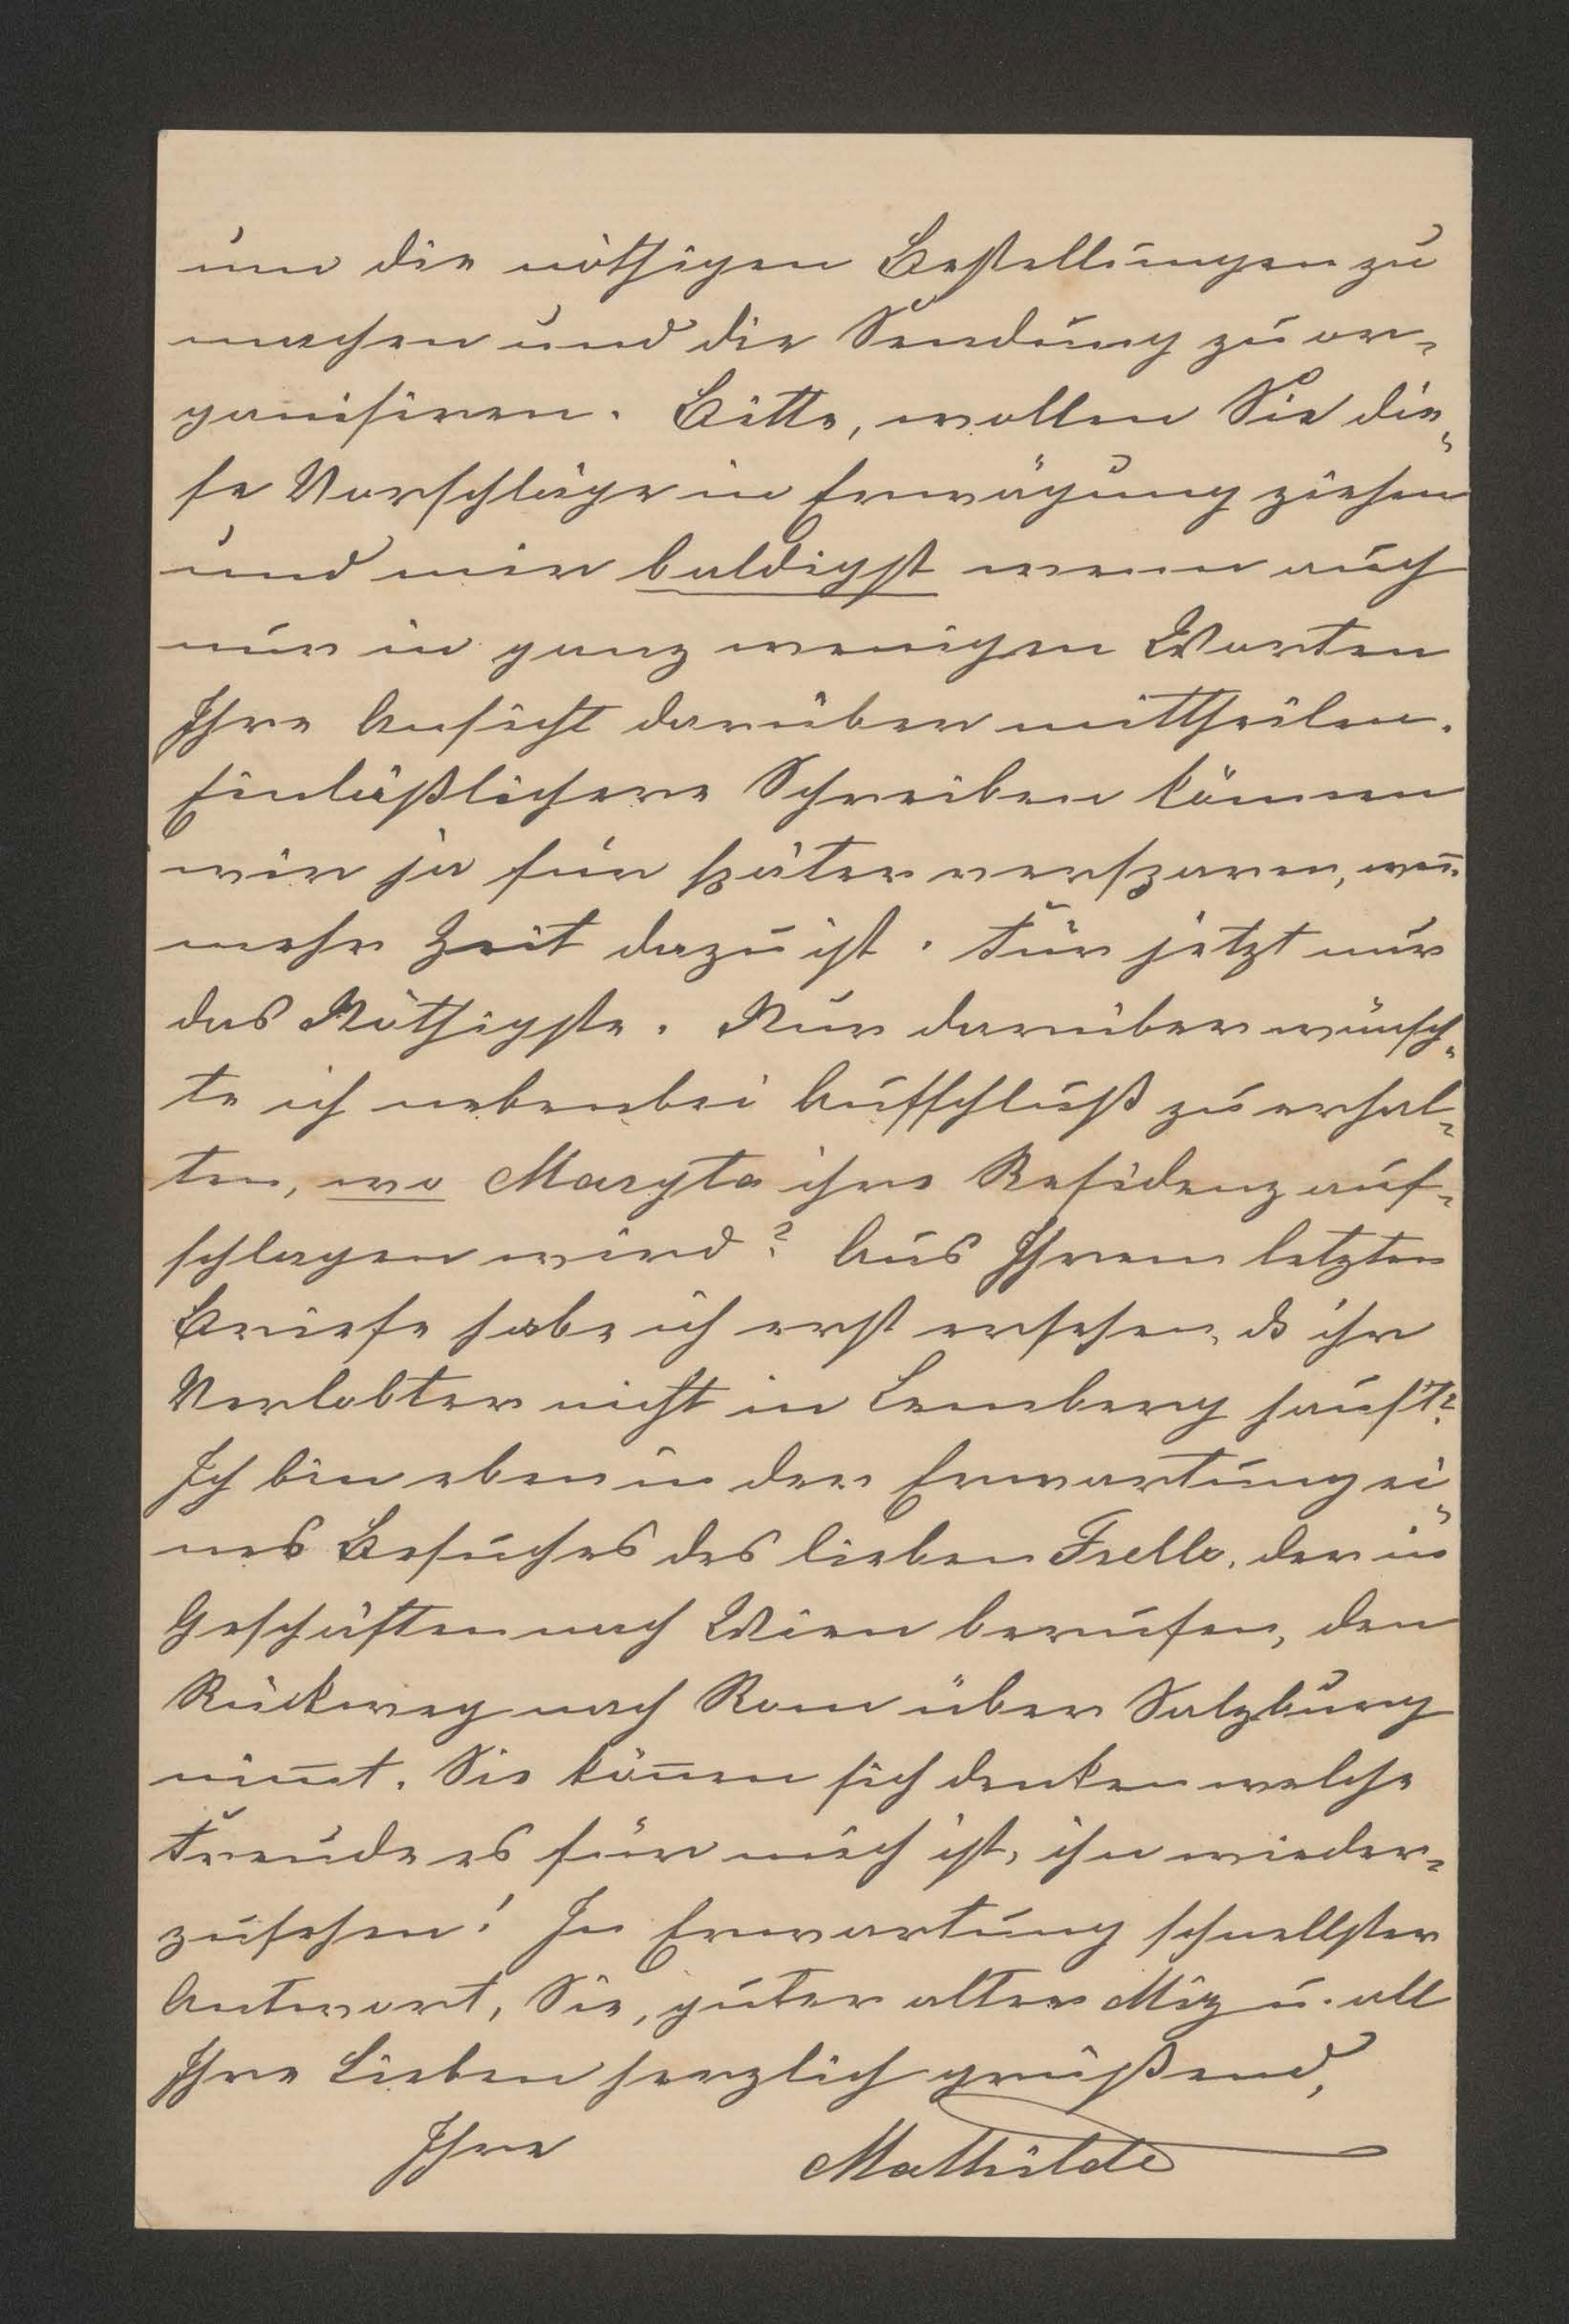 um die nöthigen Bestellungen zu
machen und die Sendung zu or=
ganisiren. Bitte, wollen Sie die=
se Vorschläge in Erwägung ziehen
und mir baldigst wenn auch
nur in ganz wenigen Worten
Ihre Ansicht darüber mittheilen.
Einläßlichere Schreiben können
wir ja für später versparen, wen̅
mehr Zeit dazu ist. Für jetzt nur
das Nöthigste. Nur darüber wünsch=
te ich nebenbei Aufschluß zu erhal=
ten, wo Maryta ihre Residenz auf=
schlagen wird? Aus Ihrem letzten
Briefe habe ich erst ersehen, ds ihr
Verlobter nicht in Lemberg haust?
Ich bin eben in der Erwartung ei=
nes Besuches des lieben Frello, der in
Geschäften nach Wien berufen, den
Rückweg nach Rom über Salzburg
nim̅t. Sie kön̅en sich denken welche
Freude es für mich ist, ihn wieder=
zusehen! In Erwartung schnellster
Antwort, Sie, guter alter Miz u. all
Ihre Lieben herzlich grüßend,
Ihre Mathilde